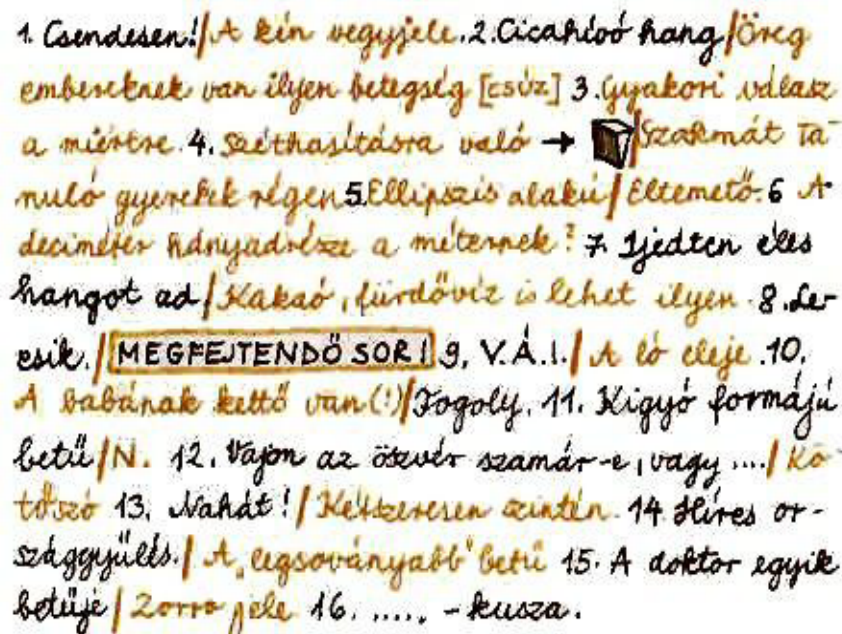 1. Csendesen!/A kén vegyjele. 2. Cicahívó hang/Öreg
embereknek van ilyen betegség [csúz] 3. Gyakori válasz
a miértre. 4. Széthasításra való → /Szakmát ta-
nuló gyerekek régen 5. Ellipszis alakú/Eltemető. 6 A
deciméter hányadrésze a méternek? 7. Ijedten éles
hangot ad/Kakaó, fürdővíz is lehet ilyen. 8. Le-
esik./MEGFEJTENDŐ SOR! 9. V.Á.I./A ló eleje. 10.
A babának kettő van(!)/Fogoly. 11. Kígyó formájú
betű/N. 12. Vajon az öszvér szamár-e, vagy ..../Kö-
tőszó 13. Nahát!/Kétszeresen szintén. 14 Híres or-
szággyűlés./A „legsoványabb" betű 15. A doktor egyik
betűje/Zorro jele 16. ..... -kusza.